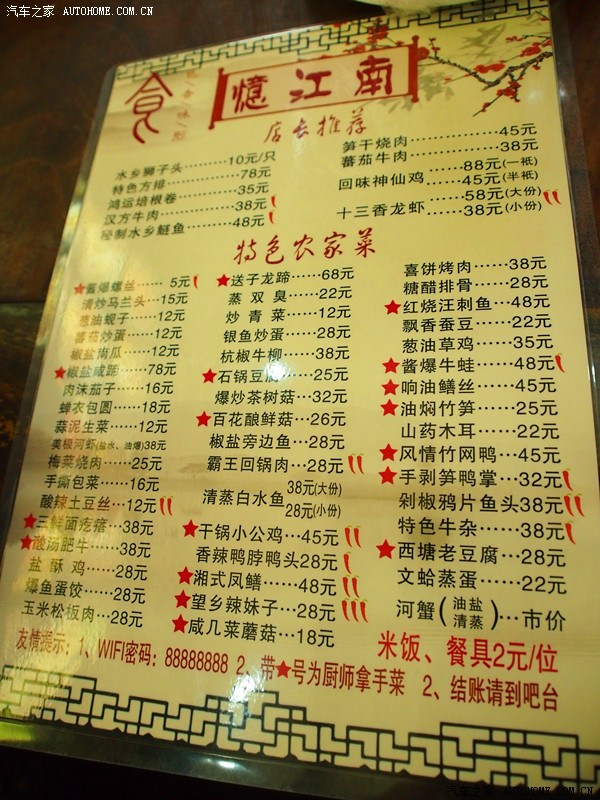 汽车之家 AUTOHOME.COM.CN
憶江南
店长推荐
水乡狮子头········10元/只
特色方排···········78元
鸿运培根卷········35元
汉方牛肉···········38元
秘制水乡鲢鱼·····48元
笋干烧肉············45元
蕃茄牛肉············38元
回味神仙鸡······88元(一祗)
45元(半祗)
十三香龙虾······58元(大份)
38元(小份)
特色农家菜
★酱爆螺丝······5元
清炒马兰头···15元
葱油蚬子······12元
蕃茄炒蛋······12元
椒盐南瓜······12元
★椒盐咸蹄······78元
肉沫茄子······16元
蝉衣包圆······18元
蒜泥生菜······12元
美极河虾(盐水、油爆)38元
梅菜烧肉······25元
手撕包菜······16元
酸辣土豆丝···12元
★三鲜面疙瘩···38元
★酸汤肥牛······38元
盐酥鸡······28元
爆鱼蛋饺······28元
玉米松板肉···28元
★送子龙蹄······68元
蒸双臭······22元
炒青菜······12元
银鱼炒蛋······28元
杭椒牛柳······38元
★石锅豆腐······25元
爆炒茶树菇···32元
★百花酿鲜菇···26元
椒盐旁边鱼···28元
霸王回锅肉···28元
清蒸白水鱼 38元(大份)
28元(小份)
★干锅小公鸡···45元
香辣鸭脖鸭头28元
★湘式凤鳝······48元
★望乡辣妹子···28元
★咸几菜蘑菇···18元
喜饼烤肉······38元
糖醋排骨······28元
★红烧汪刺鱼···48元
飘香蚕豆······22元
葱油草鸡······35元
★酱爆牛蛙······48元
★响油鳝丝······45元
★油焖竹笋······25元
山药木耳······22元
★风情竹网鸭···45元
★手剥笋鸭掌···32元
剁椒鸦片鱼头38元
特色牛杂······38元
★西塘老豆腐···28元
文蛤蒸蛋······22元
河蟹(油盐 清蒸)···市价
米饭、餐具2元/位
友情提示：1、WIFI密码：88888888 2、带★号为厨师拿手菜 2、结账请到吧台
汽车之家 AUTOHOME.COM.CN